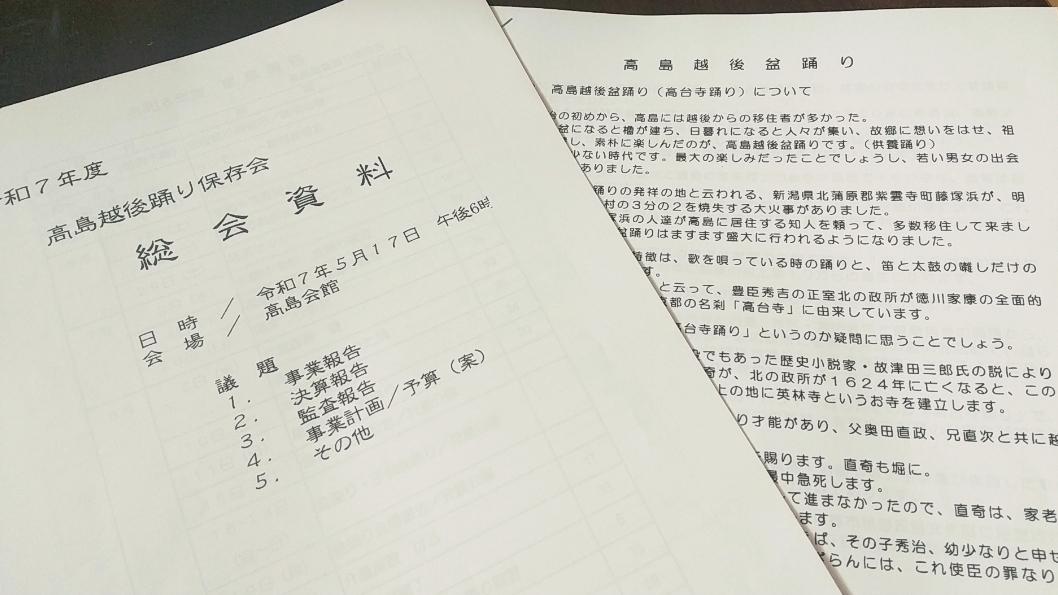 和7年度
高島越後踊り保存会
総会資料
日時 / 令和7年5月17日 午後6時
会場 / 高島会館
議題
1. 事業報告
2. 決算報告
3. 監査報告
4. 事業計画/予算(案)
5. その他
高島越後盆踊り
高島越後盆踊り(高台寺踊り)について
の初めから、高島には越後からの移住者が多かった。
盆になると櫓が建ち、日暮れになると人々が集い、故郷に想いをはせ、祖
し、素朴に楽しんだのが、高島越後盆踊りです。(供養踊り)
少ない時代です。最大の楽しみだったことでしょうし、若い男女の出会
ありました。
踊りの発祥の地と云われる、新潟県北蒲原郡紫雲寺町藤塚浜が、明
村の3分の2を焼失する大火事がありました。
塚浜の人達が高島に居住する知人を頼って、多数移住して来まし
盆踊りはますます盛大に行われるようになりました。
特徴は、歌を唄っている時の踊りと、笛と太鼓の囃しだけの
す。
と云って、豊臣秀吉の正室北の政所が徳川家康の全面的
京都の名刹「高台寺」に由来しています。
高台寺踊り」というのか疑問に思うことでしょう。
でもあった歴史小説家・故津田三郎氏の説により
奇が、北の政所が1624年に亡くなると、この
上の地に英林寺というお寺を建立します。
り才能があり、父奥田直政、兄直次と共に越
賜ります。直奇も堀に。
最中急死します。
て進まなかったので、直奇は、家老
ます。
ば、その子秀治、幼少なりと申せ
らんには、これ使臣の罪なり